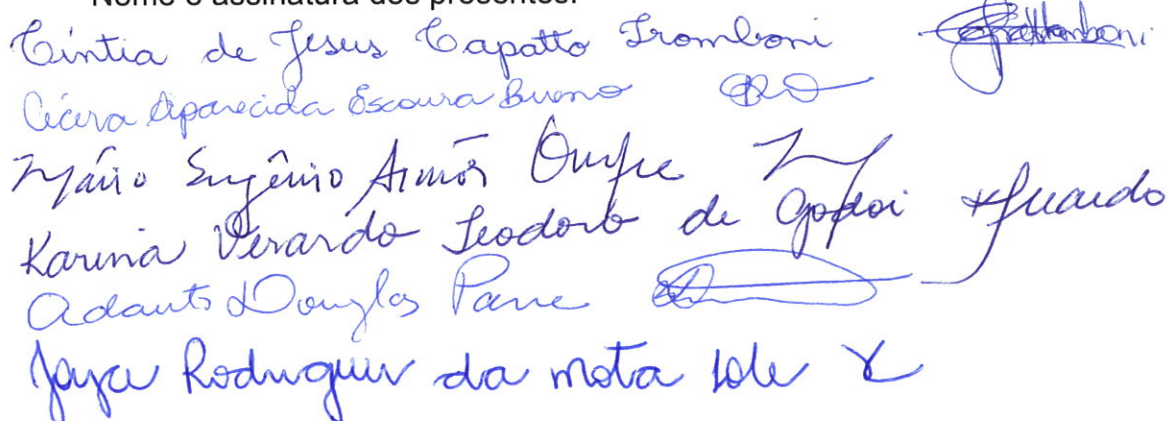 Nome e assinatura dos presentes:
Cíntia de Jesus Capatto Tromboni
Cícera Aparecida Escoura Bueno
Mário Eugênio Onofre
Karina Verardo Teodoro de Godoi KVerardo
Adauto Douglas Parre
Joyce Rodrigues da Mota